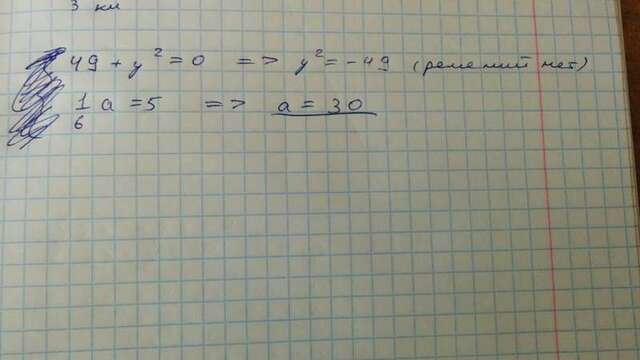 3 км
49 + y² = 0 => y² = -49 (решений нет)
1/6 a = 5 => a = 30